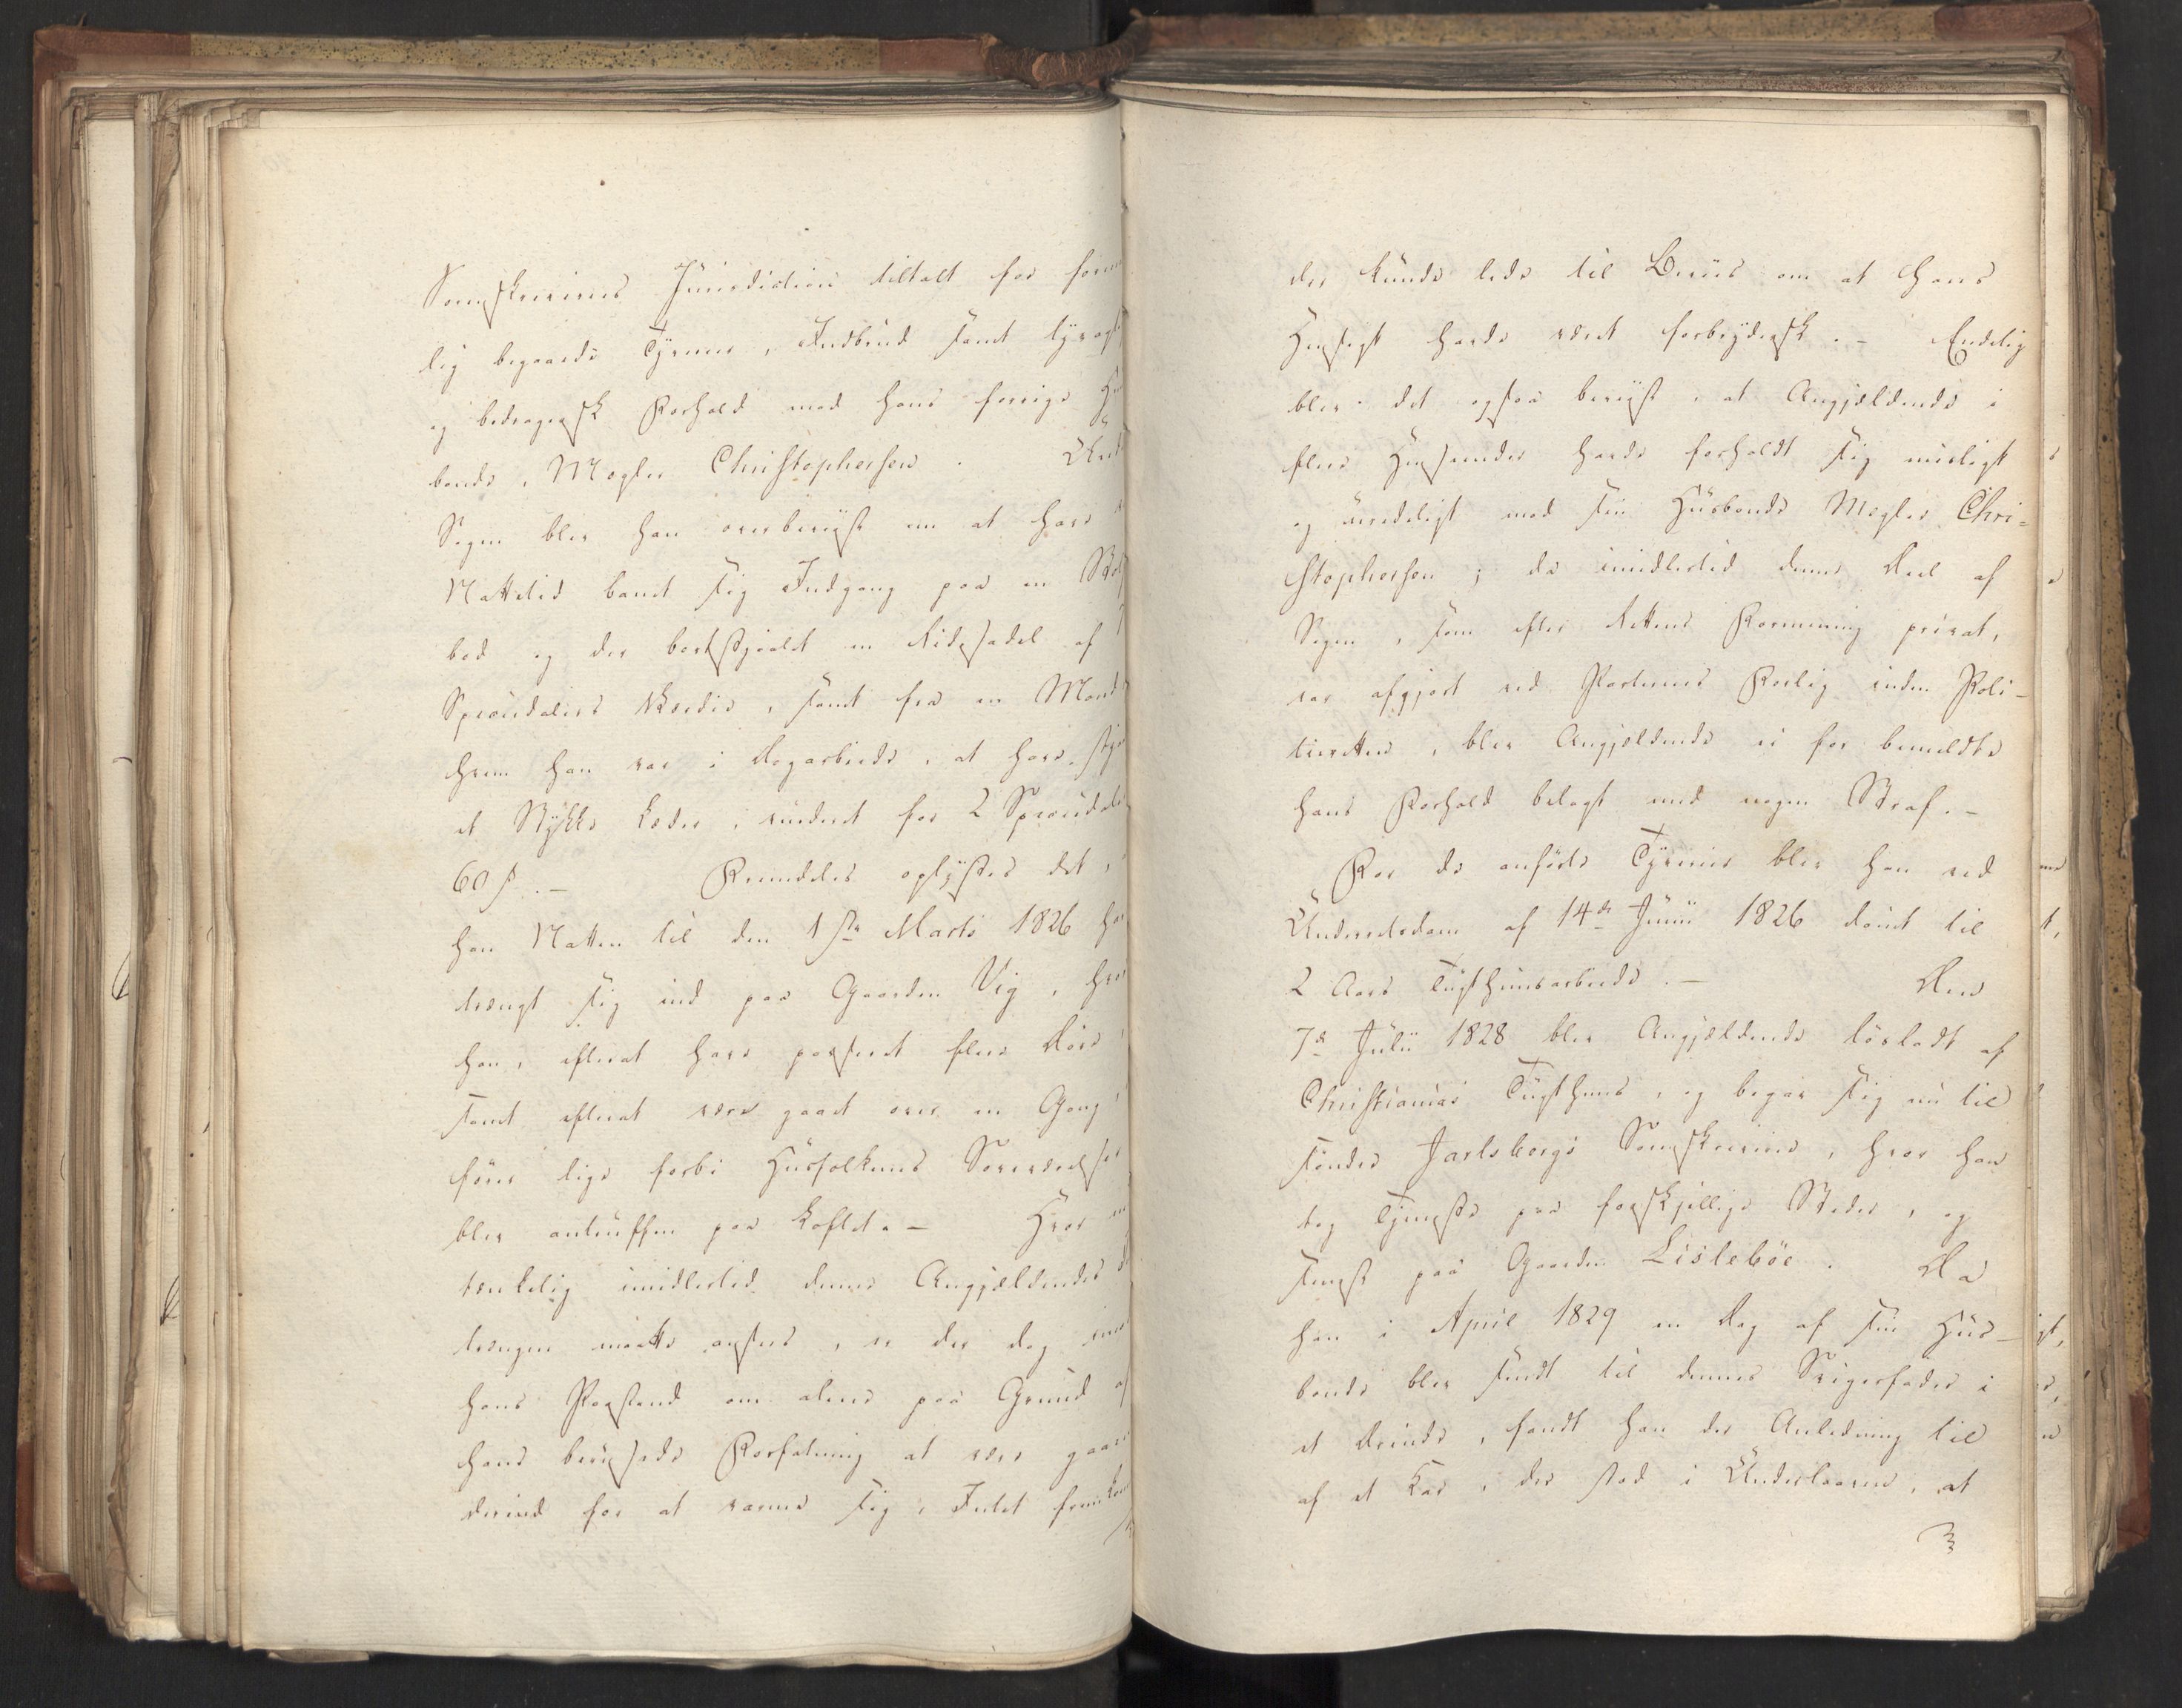 Sorenskriveries Jurisdiction tiltalt for formeent
lig begaaede Tyverier, Indbrud samt lyvagtig
og bedragersk Forhold mod hans forrige Huus
bonde, Mægler Christophersen. Under
Sagen blev han overbeviist om at have ved
Nattetid banet sig Indgang paa en
bod og der bortstjaalet en Ridesadel af
Speciedalers Værdie, samt fra en Mand
hvem han var i Dagarbeide, at have stjaa
et Stykke Læder, vurderet for 2 Speciedaler
60 s. – Fremdeles oplystes det, at
han Natten til den 1ste Marts 1826 hav
trængt sig ind paa Gaarden Vig, hvor
han, efterat have passeret flere Døre,
samt efterat være gaaet over en Gang,
føren lige forbi Huusfolkenes Soveværelser
blev antruffen paa Loftet. – Hvor
tænkelig imidlertid denne Angjeldendes
trængen maatte ansees, er der dog
hans Paastand om alene paa Grund af
hans berusede Forfatning at være gaaet
derind for at varme sig, Intet fremkom
der kunde lede til Beviis om at hans
Hensigt havde været forbrydersk. – Endelig
blev det ogsaa beviist, at Angjeldende i
flere Henseender havde forholdt sig misligt
og uredeligt mod sin Huusbonde Mægler Chri-
stophersen; da imidlertid denne Deel af
Sagen, som efter Rettens Formening privat,
var afgjort ved Parternes Forlig inden Poli-
tieretten, blev Angjeldende ei for bemeldte
hans Forhold belagt med nogen Straf. –
For de anførte Tyverier blev han ved
Underretsdom af 14de Junii 1826 dømt til
2 Aars Tugthuusarbeide. – Den
7de Julii 1828 blev Angjeldende løsladt af
Christianias Tugthuus, og begav sig nu til
søndre Jarlsbergs Sorenskriverie, hvor han
tog Tjeneste paa forskjellige Steder, og
senest paa Gaarden Lislebøe. Da
han i April 1829 en Dag af sin Huus-
bonde blev sendt til dennes Svigerfader i
et Ærinde, fandt han der Anledning til
af et Kar, der stod i Underlaaven, at